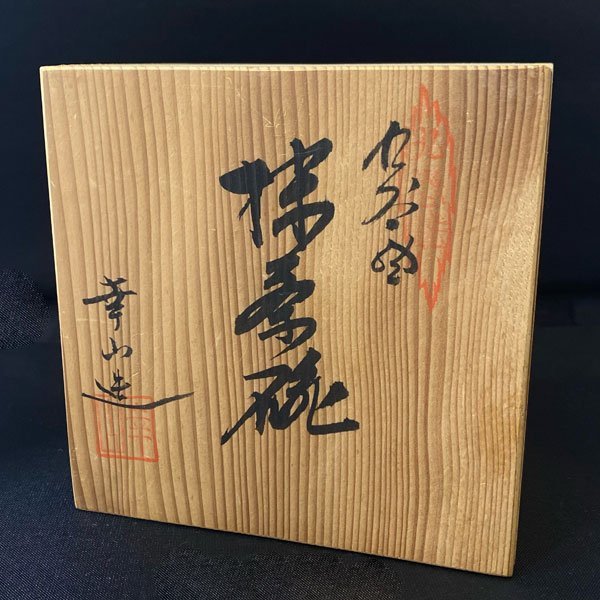 九谷風
抹茶碗
幸山造